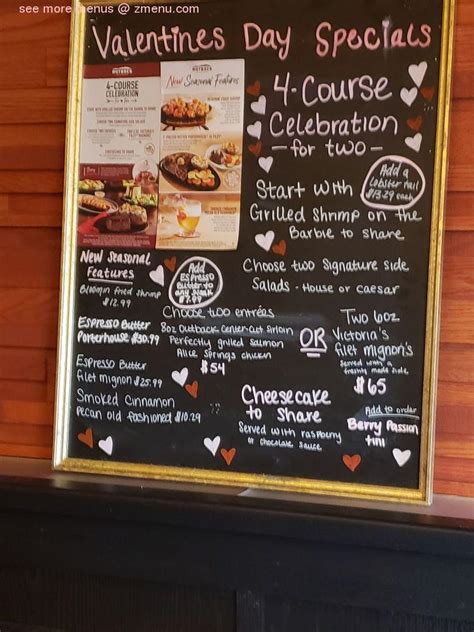 see more menus @ zmenu.com
Valentines Day Specials
OUTBACK
4-COURSE
CELEBRATION
New Seasonal Features
4-Course
Celebration
-for two-
Add a
Lobster tail
$13.29 each
Start with
Grilled Shrimp on the
Barbie to share
Choose two Signature side
Salads - House or caesar
New Seasonal
Features
Bloomin fried shrimp
$12.99
Add
Espresso
Butter to
any steak
$1.99
Espresso Butter
Porterhouse $30.99
Espresso Butter
filet mignon $25.99
Smoked Cinnamon
pecan old fashioned $10.29
Choose two entrées
8oz Outback Center-cut Sirloin
Perfectly grilled Salmon
Alice Springs chicken
$54
OR
Two 6oz
Victoria's
filet mignon's
Served with a
freshly made side
$65
Cheesecake
to Share
Served with raspberry
or chocolate sauce
Add to order
Berry Passion
tini